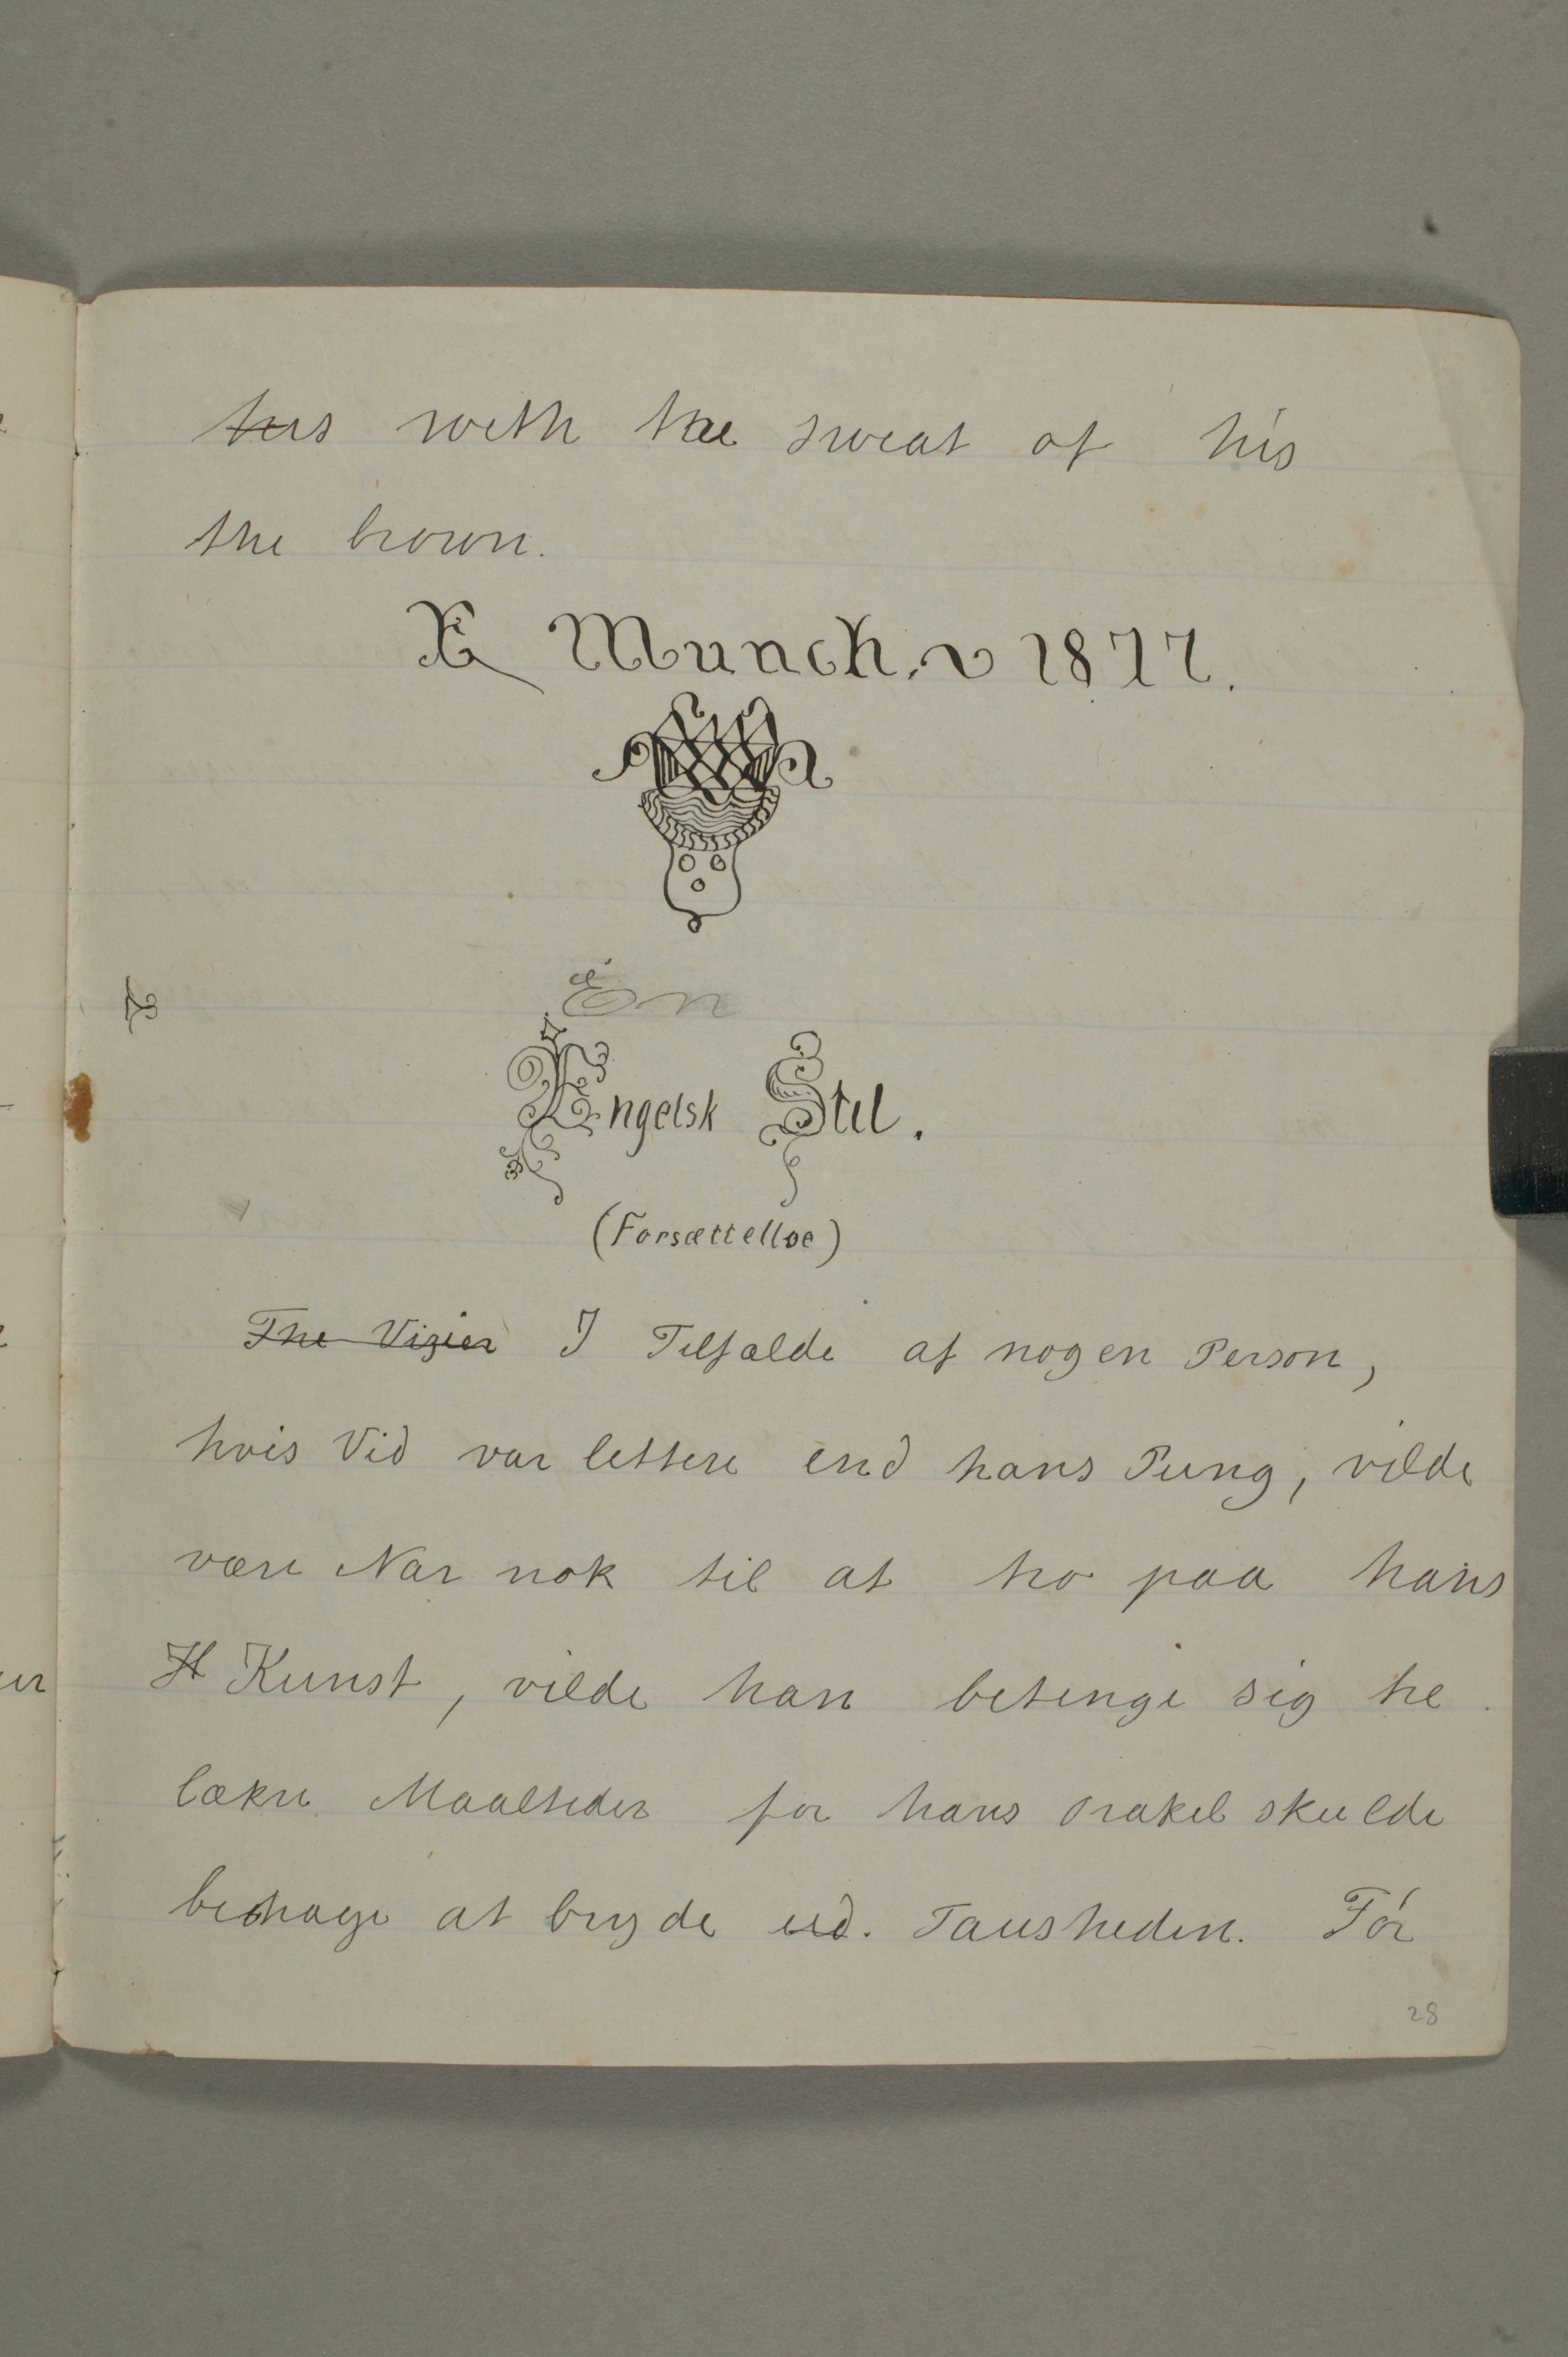 his with the sweat of his
the brown.
E Munch. 1877.
En
E
Engelsk Stil.
(Forsættellse)
The Vizier I Tilfælde af nogen Person,
hvis Vid var lettere end hans Pung, vilde
være Nar nok til at tro paa hans
H Kunst, vilde han betinge sig
lækre Maaltider før hans Orakel skulde
behage at bryde ud. Tausheden. Før
28